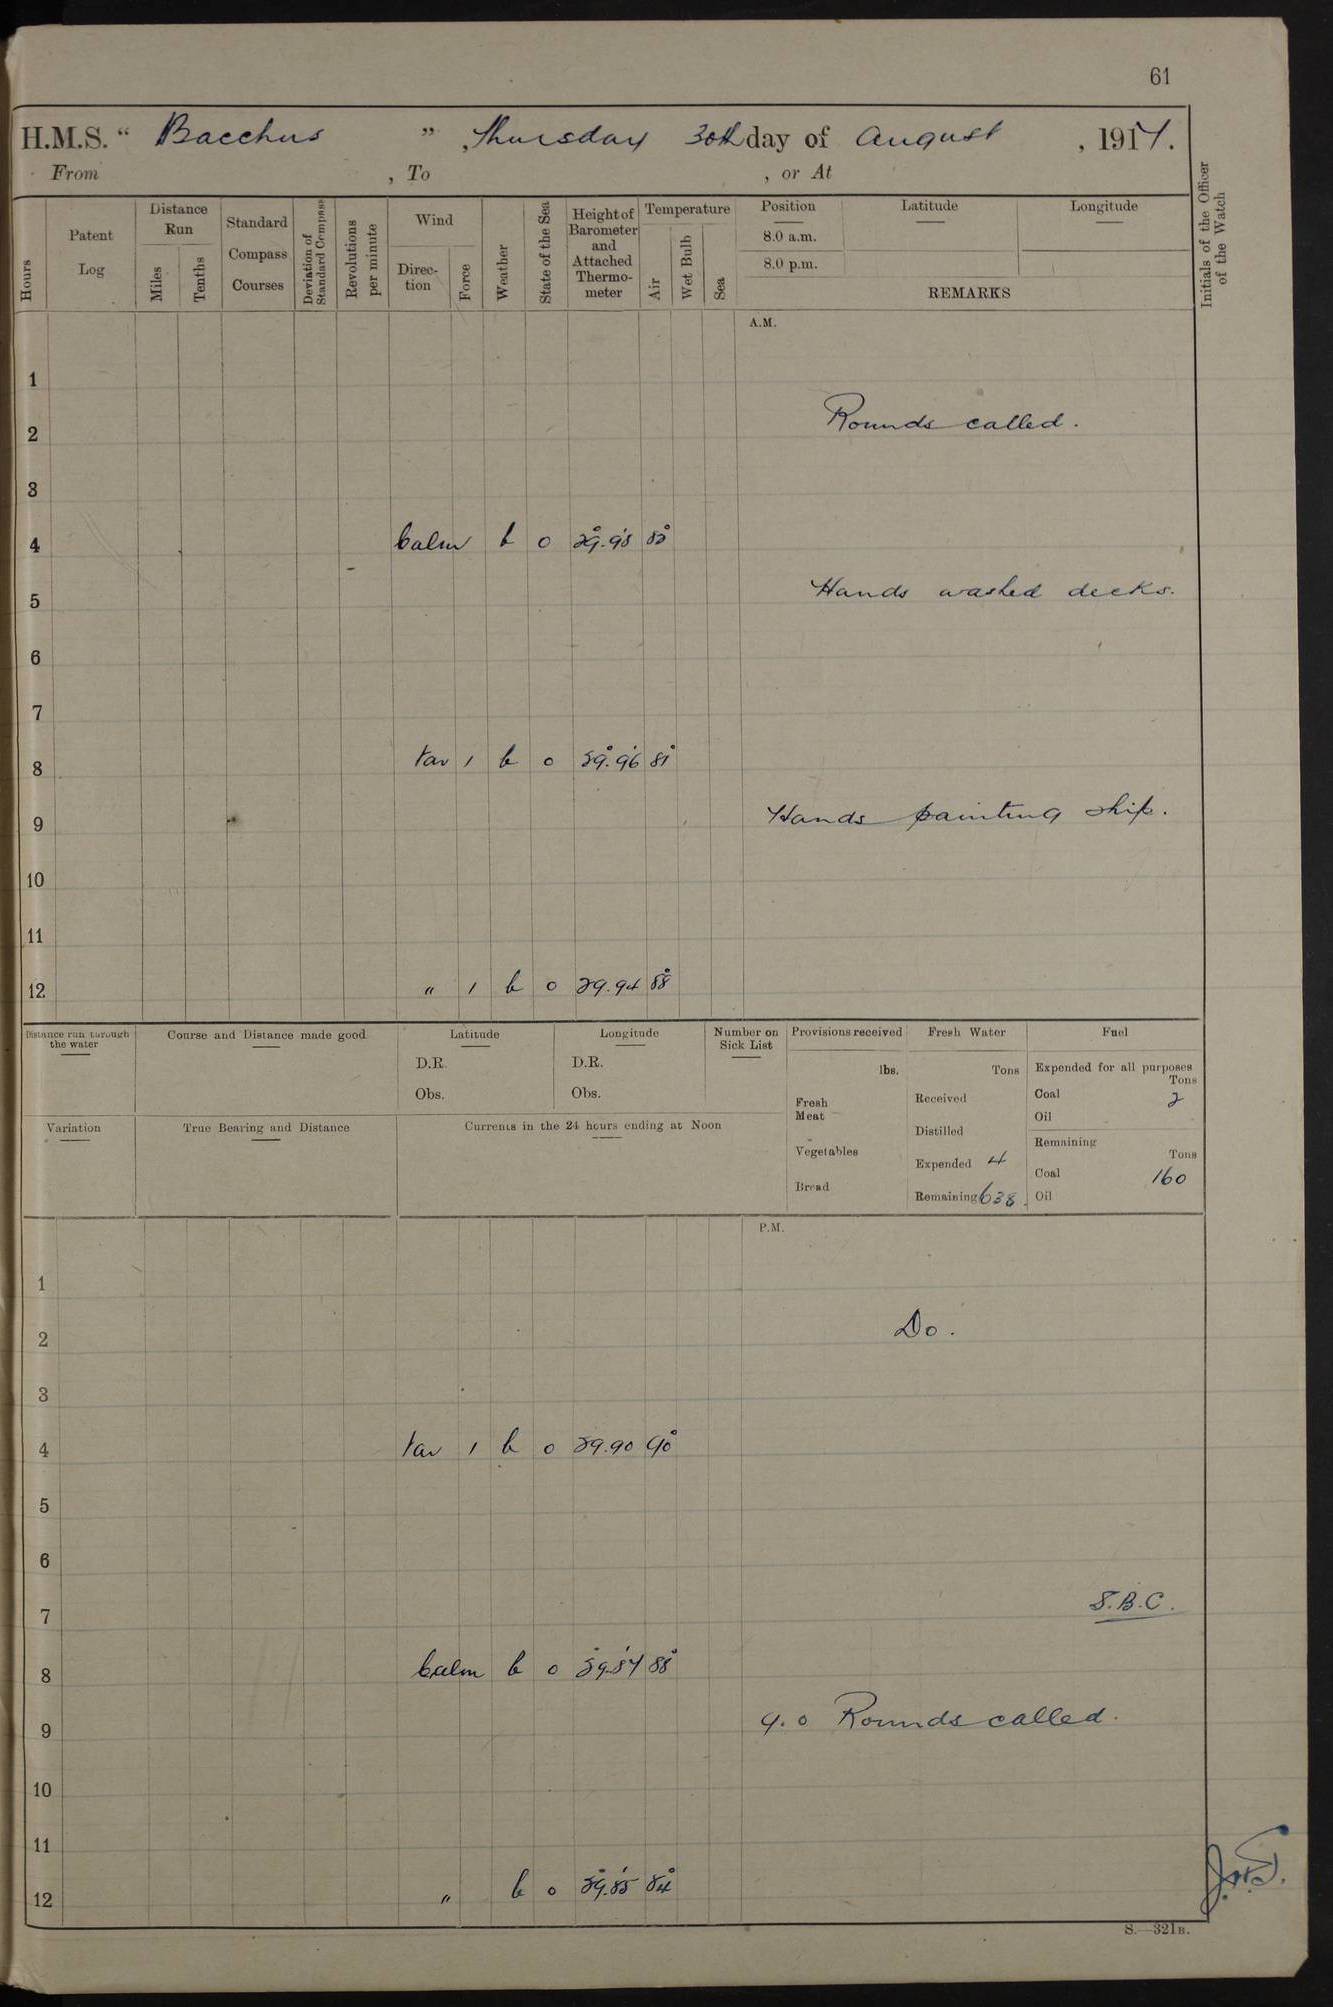 61
H.M.S. “ Bacchus ”, Thursday 30th day of August, 1917.
From , To , or At
Hours
Patent Log
Distance Run
Miles
Tenths
Standard Compass Courses
Deviation of Standard Compass
Revolutions per minute
Wind
Direction
Force
Weather
State of the Sea
Height of Barometer and Attached Thermometer
Temperature
Air
Wet Bulb
Sea
Position
Latitude
Longitude
8.0 a.m.
8.0 p.m.
REMARKS
Initials of the Officer of the Watch
A.M.
1
Rounds called.
2
3
4 Calm b 0
Hands washed decks.
5
6
7
8 Var 1 b 0 29.96 81°
Hands painting ship.
9
10
11
12 " 1 b 0 29.94 88°
Distance run through the water
Course and Distance made good
Latitude
D.R.
Obs.
Longitude
D.R.
Obs.
Number on Sick List
Provisions received
lbs.
Fresh Meat
Vegetables
Bread
Fresh Water
Tons
Received
Distilled
Expended 4
Remaining 638.
Fuel
Expended for all purposes
Tons
Coal 2
Oil
Remaining
Tons
Coal 160
Oil
Variation
True Bearing and Distance
Currents in the 24 hours ending at Noon
P.M.
1
Do.
2
3
4 Var 1 b 0 29.90 90°
5
6
S.B.C.
7
8 Calm b 0 29.87 88°
9.0 Rounds called.
9
10
11
12 " b 0 29.85 84°
S.—321B.